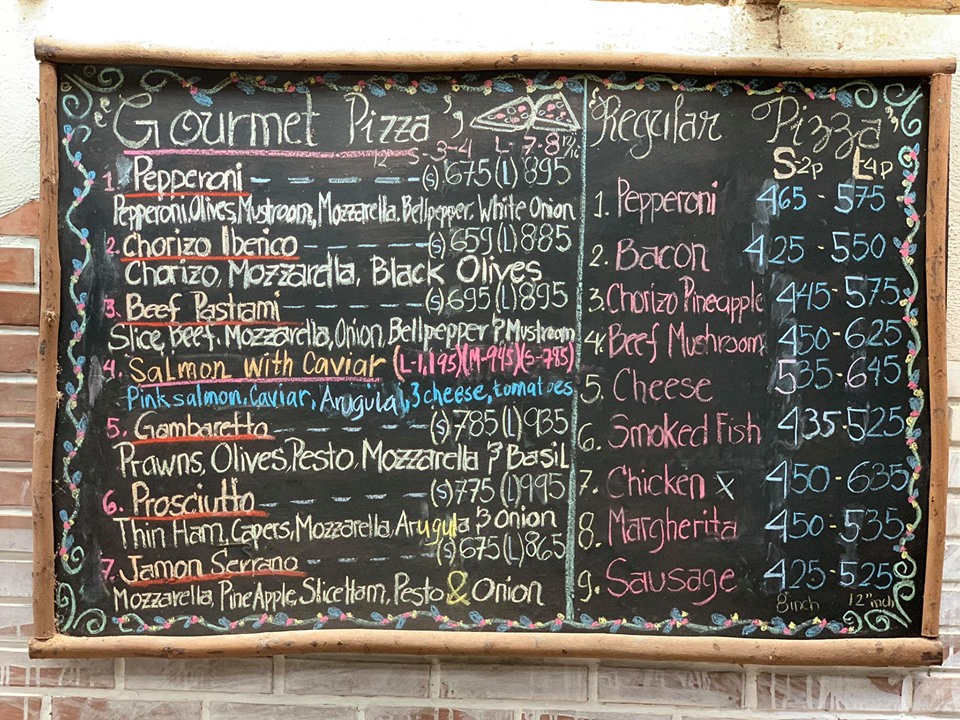 Gourmet Pizza's
S-3-4 L-7-8
1. Pepperoni - - - - - - (S) 675 (L) 895
Pepperoni, Olives, Mustroom, Mozzarella, Bellpepper. White Onion
2. Chorizo Iberico - - - - - (S) 659 (L) 885
Chorizo, Mozzarella, Black Olives
3. Beef Pastrami - - - - - (S) 695 (L) 895
Slice, Beef, Mozzarella, Onion, Bellpepper & Mustroom
4. Salmon with Caviar (L-1,195)(M-945)(S-795)
Pink salmon, Caviar, Arugula, 3 cheese, tomatoes
5. Gambaretto - - - - - (S) 785 (L) 935
Prawns, Olives, Pesto, Mozzarella & Basil
6. Prosciutto - - - - - (S) 775 (L) 995
Thin Ham, Capers, Mozzarella, Arugula & Onion
7. Jamon Serrano - - - - - (S) 675 (L) 865
Mozzarella, PineApple, Slice Ham, Pesto & Onion
Regular Pizza's
S-2p L4p
1. Pepperoni 465 - 575
2. Bacon 425 - 550
3. Chorizo Pineapple 445 - 575
4. Beef Mushroom 450 - 625
5. Cheese 535 - 645
6. Smoked Fish 435 - 525
7. Chicken x 450 - 635
8. Margherita 450 - 535
9. Sausage 425 - 525
8inch 12"inch